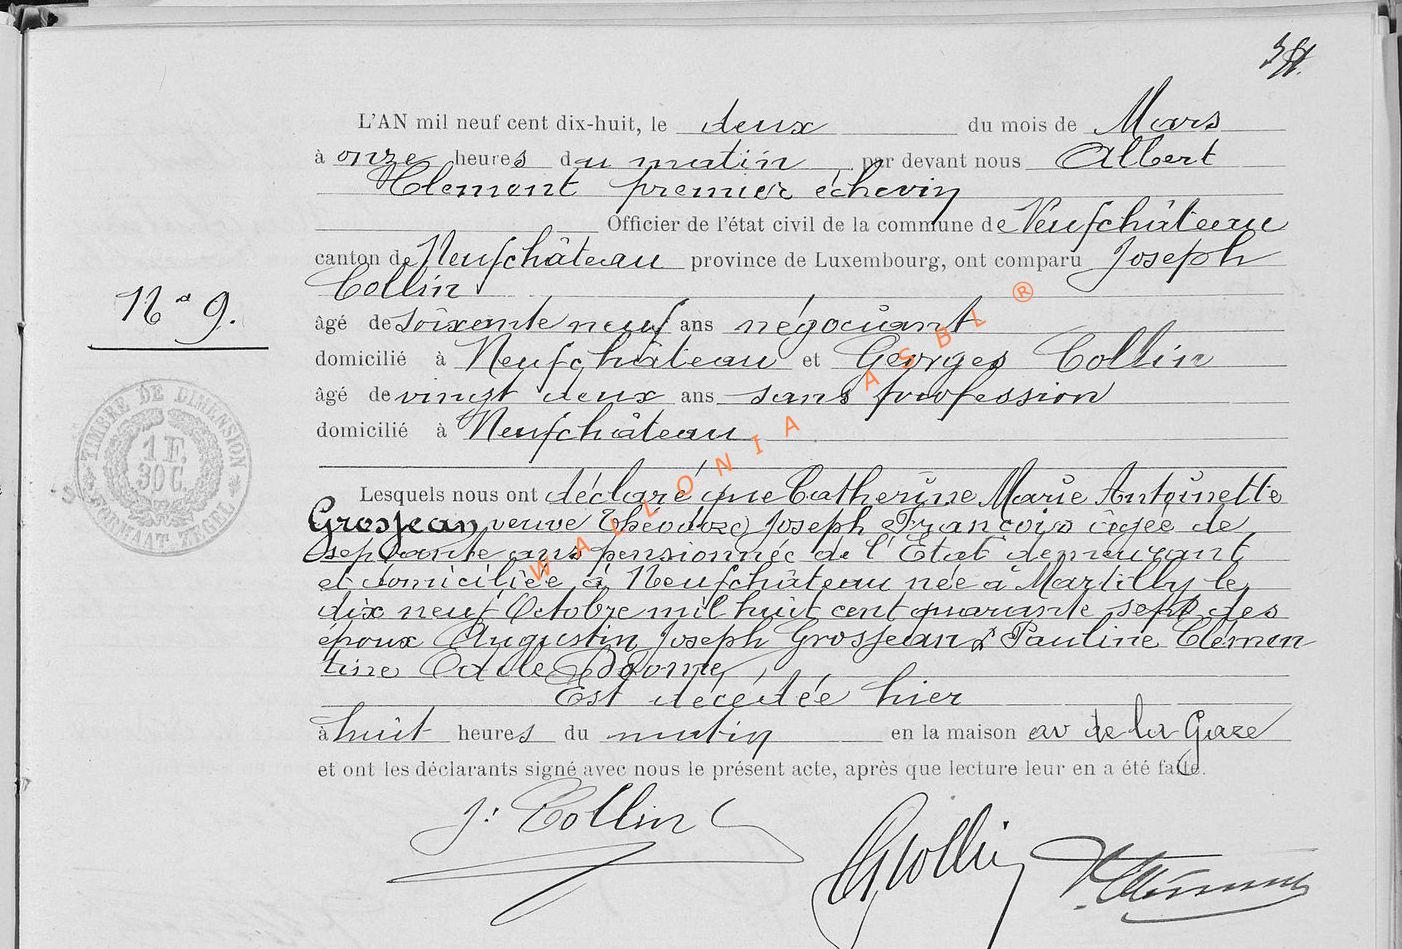 L'AN mil neuf cent dix-huit, le deux du mois de Mars
à onze heures du matin par devant nous Albert
Clement premier échevin
Officier de l'état civil de la commune de Neufchâteau
canton de Neufchâteau province de Luxembourg, ont comparu Joseph
Collin
N° 9.
âgé de soixante neuf ans négociant
domicilié à Neufchâteau et Georges Collin
âgé de vingt deux ans sans profession
domicilié à Neufchâteau
TIMBRE DE DIMENSION
1 F.
30 C.
FORMAAT ZEGEL
WALLONIA ASBL ®
Lesquels nous ont déclaré que Catherine Marie Antoinette
Grosjean, veuve Théodore Joseph François âgée de
septante ans pensionnée de l'Etat demeurant
et domiciliée à Neufchâteau née à Martilly le
dix neuf Octobre mil huit cent quarante sept des
époux Augustin Joseph Grosjean & Pauline Clémen
tine
Est décédée hier
à huit heures du matin en la maison av de la Gare
et ont les déclarants signé avec nous le présent acte, après que lecture leur en a été faite.
J. Collin
G Collin